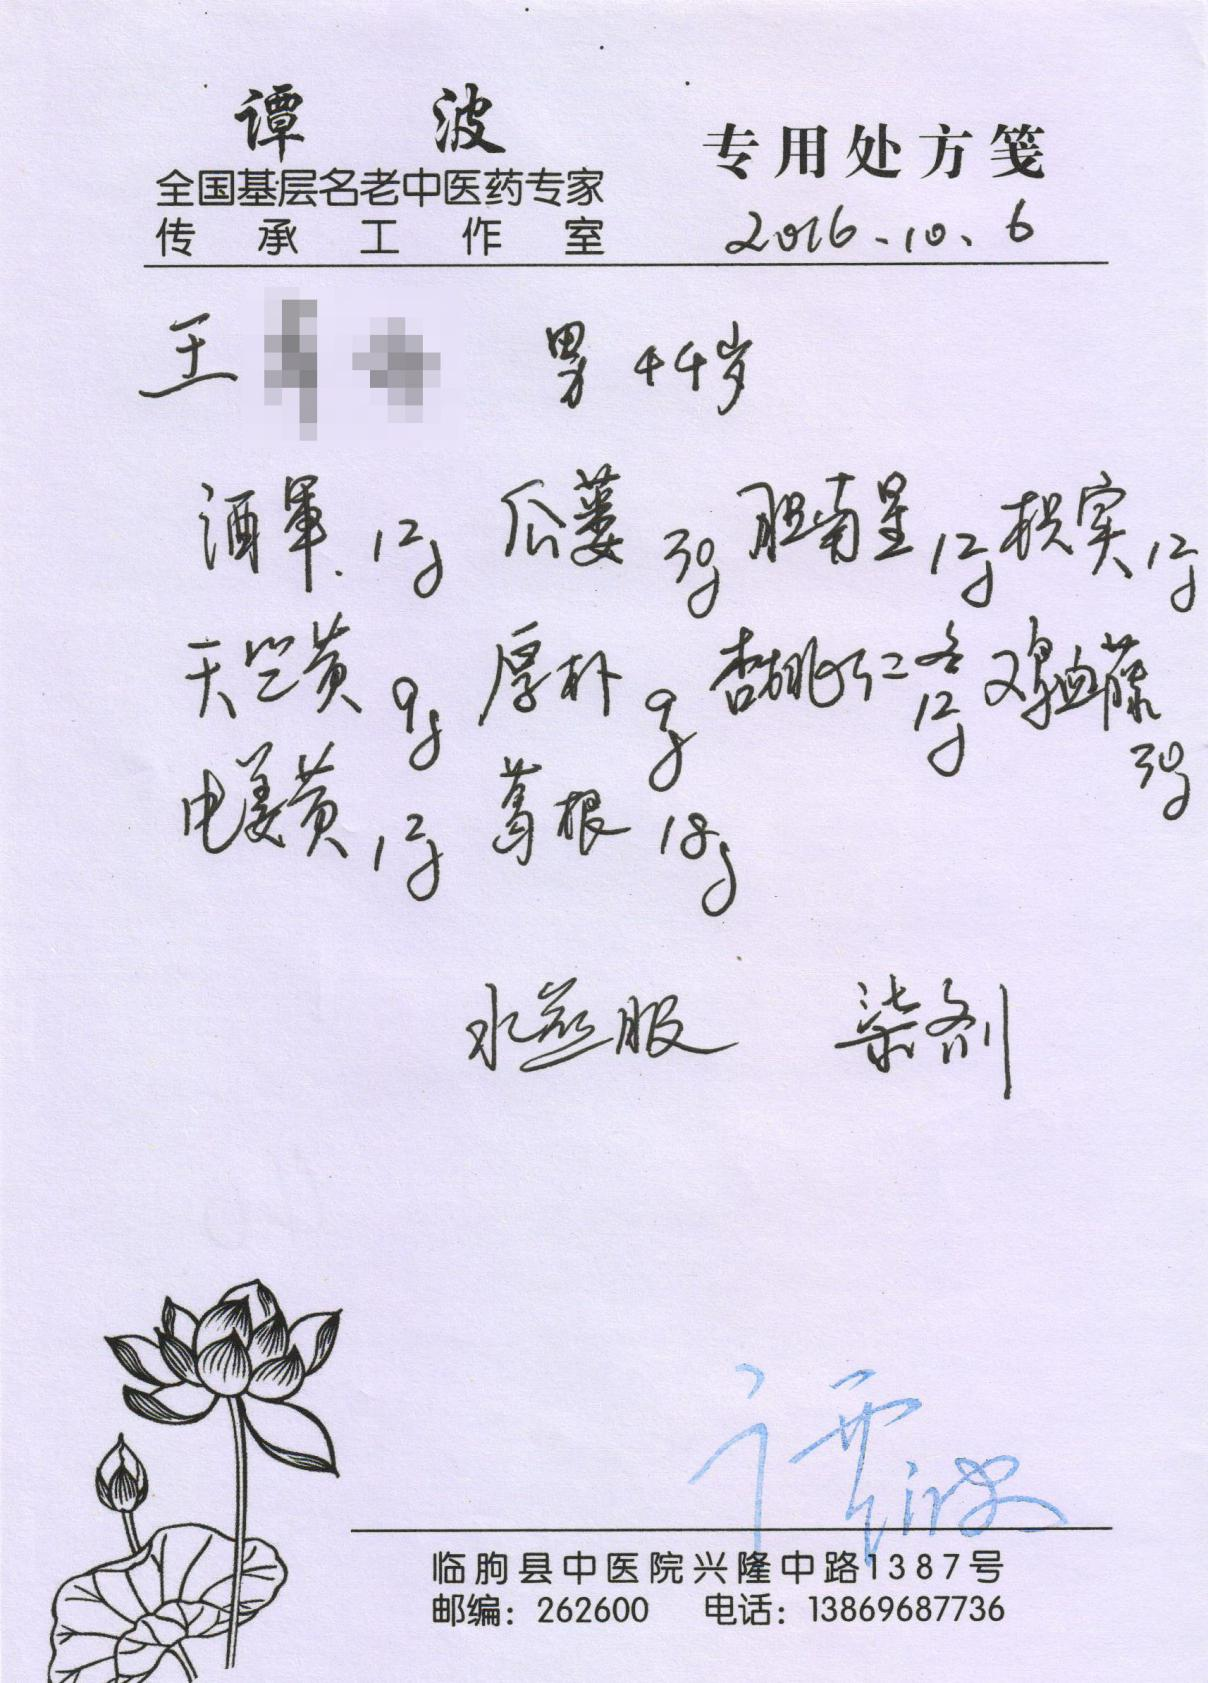 谭 波
全国基层名老中医药专家
传承工作室
专用处方笺
2016.10.6
王 男 44岁
酒軍12g 瓜蒌30g 胆南星12g 枳实12g
天竺黄9g 厚朴9g 杏桃仁各12g 鸡血藤30g
电姜黄12g 葛根18g
水煎服 柒剂
谭波
临朐县中医院兴隆中路1387号
邮编：262600 电话：13869687736